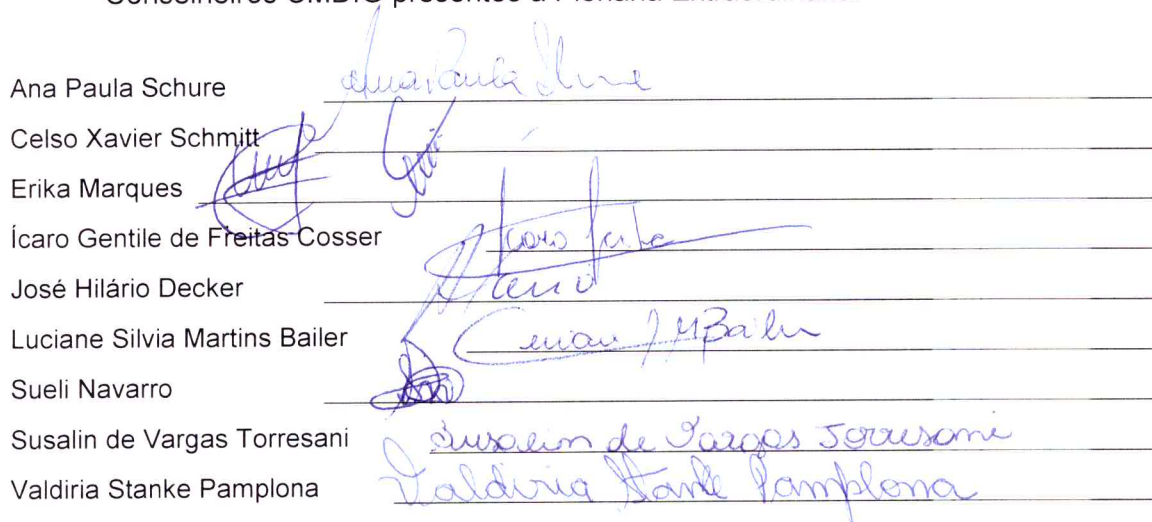 Ana Paula Schure Ana Paula Schure
Celso Xavier Schmitt
Erika Marques
Ícaro Gentile de Freitas Cosser Icaro
José Hilário Decker
Luciane Silvia Martins Bailer Bailer
Sueli Navarro
Susalin de Vargas Torresani Susalin de Vargas Torresani
Valdiria Stanke Pamplona Valdiria Stanke Pamplona